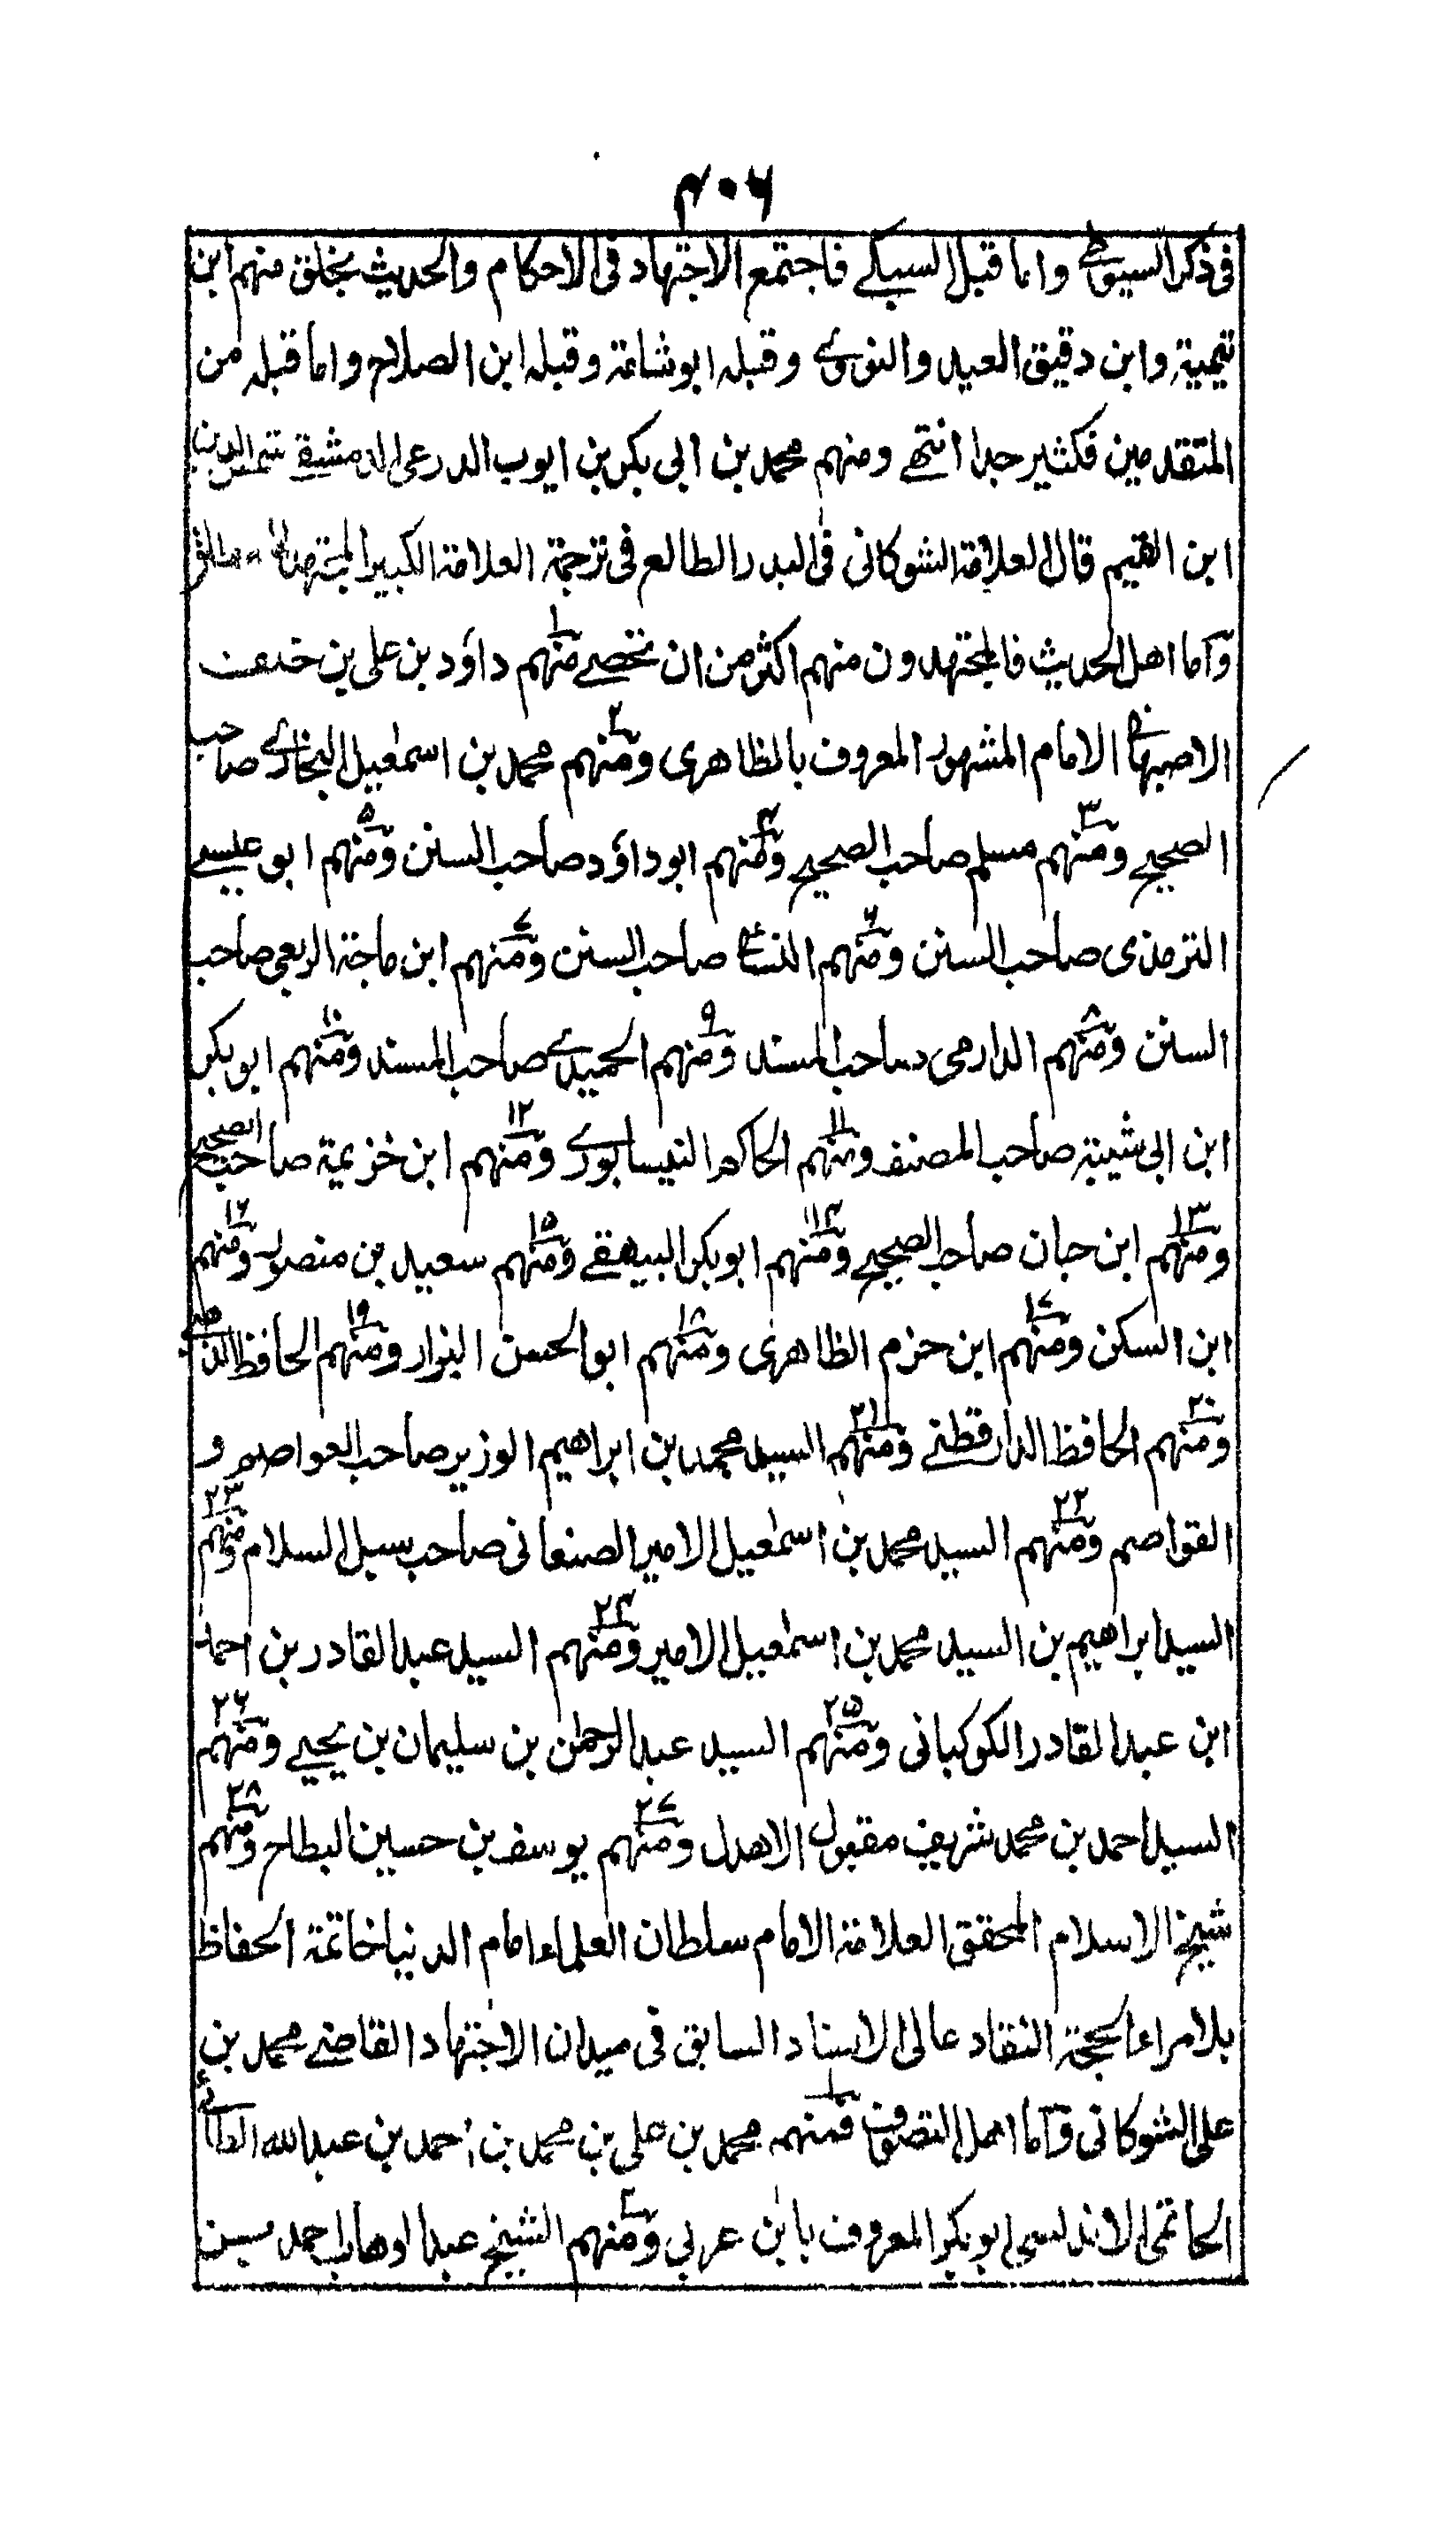 ۴۰۶
فی ذکر السیوطی واما قبل السبکے فاجتمع الاجتهاد فی الاحکام والحدیث بخلق منهم ابن
تیمیة وابن دقیق العید والنووی وقبله ابوشامة وقبله ابن الصلاح واما قبله من
المتقدمین فکثیر جدا انتهے ومنهم محمد بن ابی بکر بن ایوب الدرعی الدمشقے شمس الدین
ابن القیم قال العلامة الشوکانی فی البدر الطالع فی ترجمة العلامة الکبیر المجتهد المطلق
وآما اهل الحدیث فالمجتهدون منهم اکثر من ان تحصے ۱ منهم داؤد بن علی بن خلف
الاصبهانی الامام المشهور المعروف بالظاهری ۲ ومنهم محمد بن اسمٰعیل البخاری صاحب
الصحیح ۳ ومنهم مسلم صاحب الصحیح ۴ ومنهم ابوداؤد صاحب السنن ۵ ومنهم ابو عیسے
الترمذی صاحب السنن ۶ ومنهم النسائی صاحب السنن ۷ ومنهم ابن ماجة الربعی صاحب
السنن ۸ ومنهم الدارمی صاحب المسند ۹ ومنهم الحمیدی صاحب المسند ۱۰ ومنهم ابوبکر
ابن ابی شیبة صاحب المصنف ۱۱ ومنهم الحاکم النیسابوری ۱۲ ومنهم ابن خزیمة صاحب الصحیح
۱۳ ومنهم ابن حبان صاحب الصحیح ۱۴ ومنهم ابوبکر البیهقے ۱۵ ومنهم سعید بن منصور ۱۶ ومنهم
ابن السکن ۱۷ ومنهم ابن حزم الظاهری ۱۸ ومنهم ابوالحسن البزار ۱۹ ومنهم الحافظ الذهبی
۲۰ ومنهم الحافظ الدارقطنے ۲۱ ومنهم السید محمد بن ابراهیم الوزیر صاحب العواصم و
القواصم ۲۲ ومنهم السید محمد بن اسمٰعیل الامیر الصنعانی صاحب سبل السلام ۲۳ ومنهم
السید ابراهیم بن السید محمد بن اسمٰعیل الامیر ۲۴ ومنهم السید عبد القادر بن احمد
ابن عبد القادر الکوکبانی ۲۵ ومنهم السید عبد الرحمٰن بن سلیمان بن یحیے ۲۶ ومنهم
السید احمد بن محمد شریف مقبول الاهدل ۲۷ ومنهم یوسف بن حسین البطاح ۲۸ ومنهم
شیخ الاسلام المحقق العلامة الامام سلطان العلماء امام الدنیا خاتمة الحفاظ
بلا مراء الحجة النقاد عالی الاسناد السابق فی میدان الاجتهاد القاضے محمد بن
علی الشوکانی وآما اهل التصوف ۱ فمنهم محمد بن علی بن محمد بن احمد بن عبد الله الطائی
الحاتمی الاندلسی ابوبکر المعروف بابن عربی ۲ ومنهم الشیخ عبد الوهاب احمد